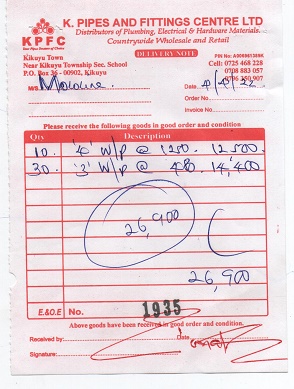 K. PIPES AND FITTINGS CENTRE LTD
Distributors of Plumbing, Electrical & Hardware Materials.
Countrywide Wholesale and Retail
KPFC
DELIVERY NOTE
Kikuyu Town
Near Kikuyu Township Sec. School
P.O. Box 36 - 00902, Kikuyu
Cell: 0725 468 228
0708 883 057
M/S
Date
Order No.
Invoice No.
Please receive the following goods in good order and condition
Qty Description
10. '4' W/P @ 1250. 12500.
30. '3' W/P @ 480. 14,400
26,900
26,900
E.&O.E No. 1935
Above goods have been received in good order and condition.
Received by: Date
Signature: